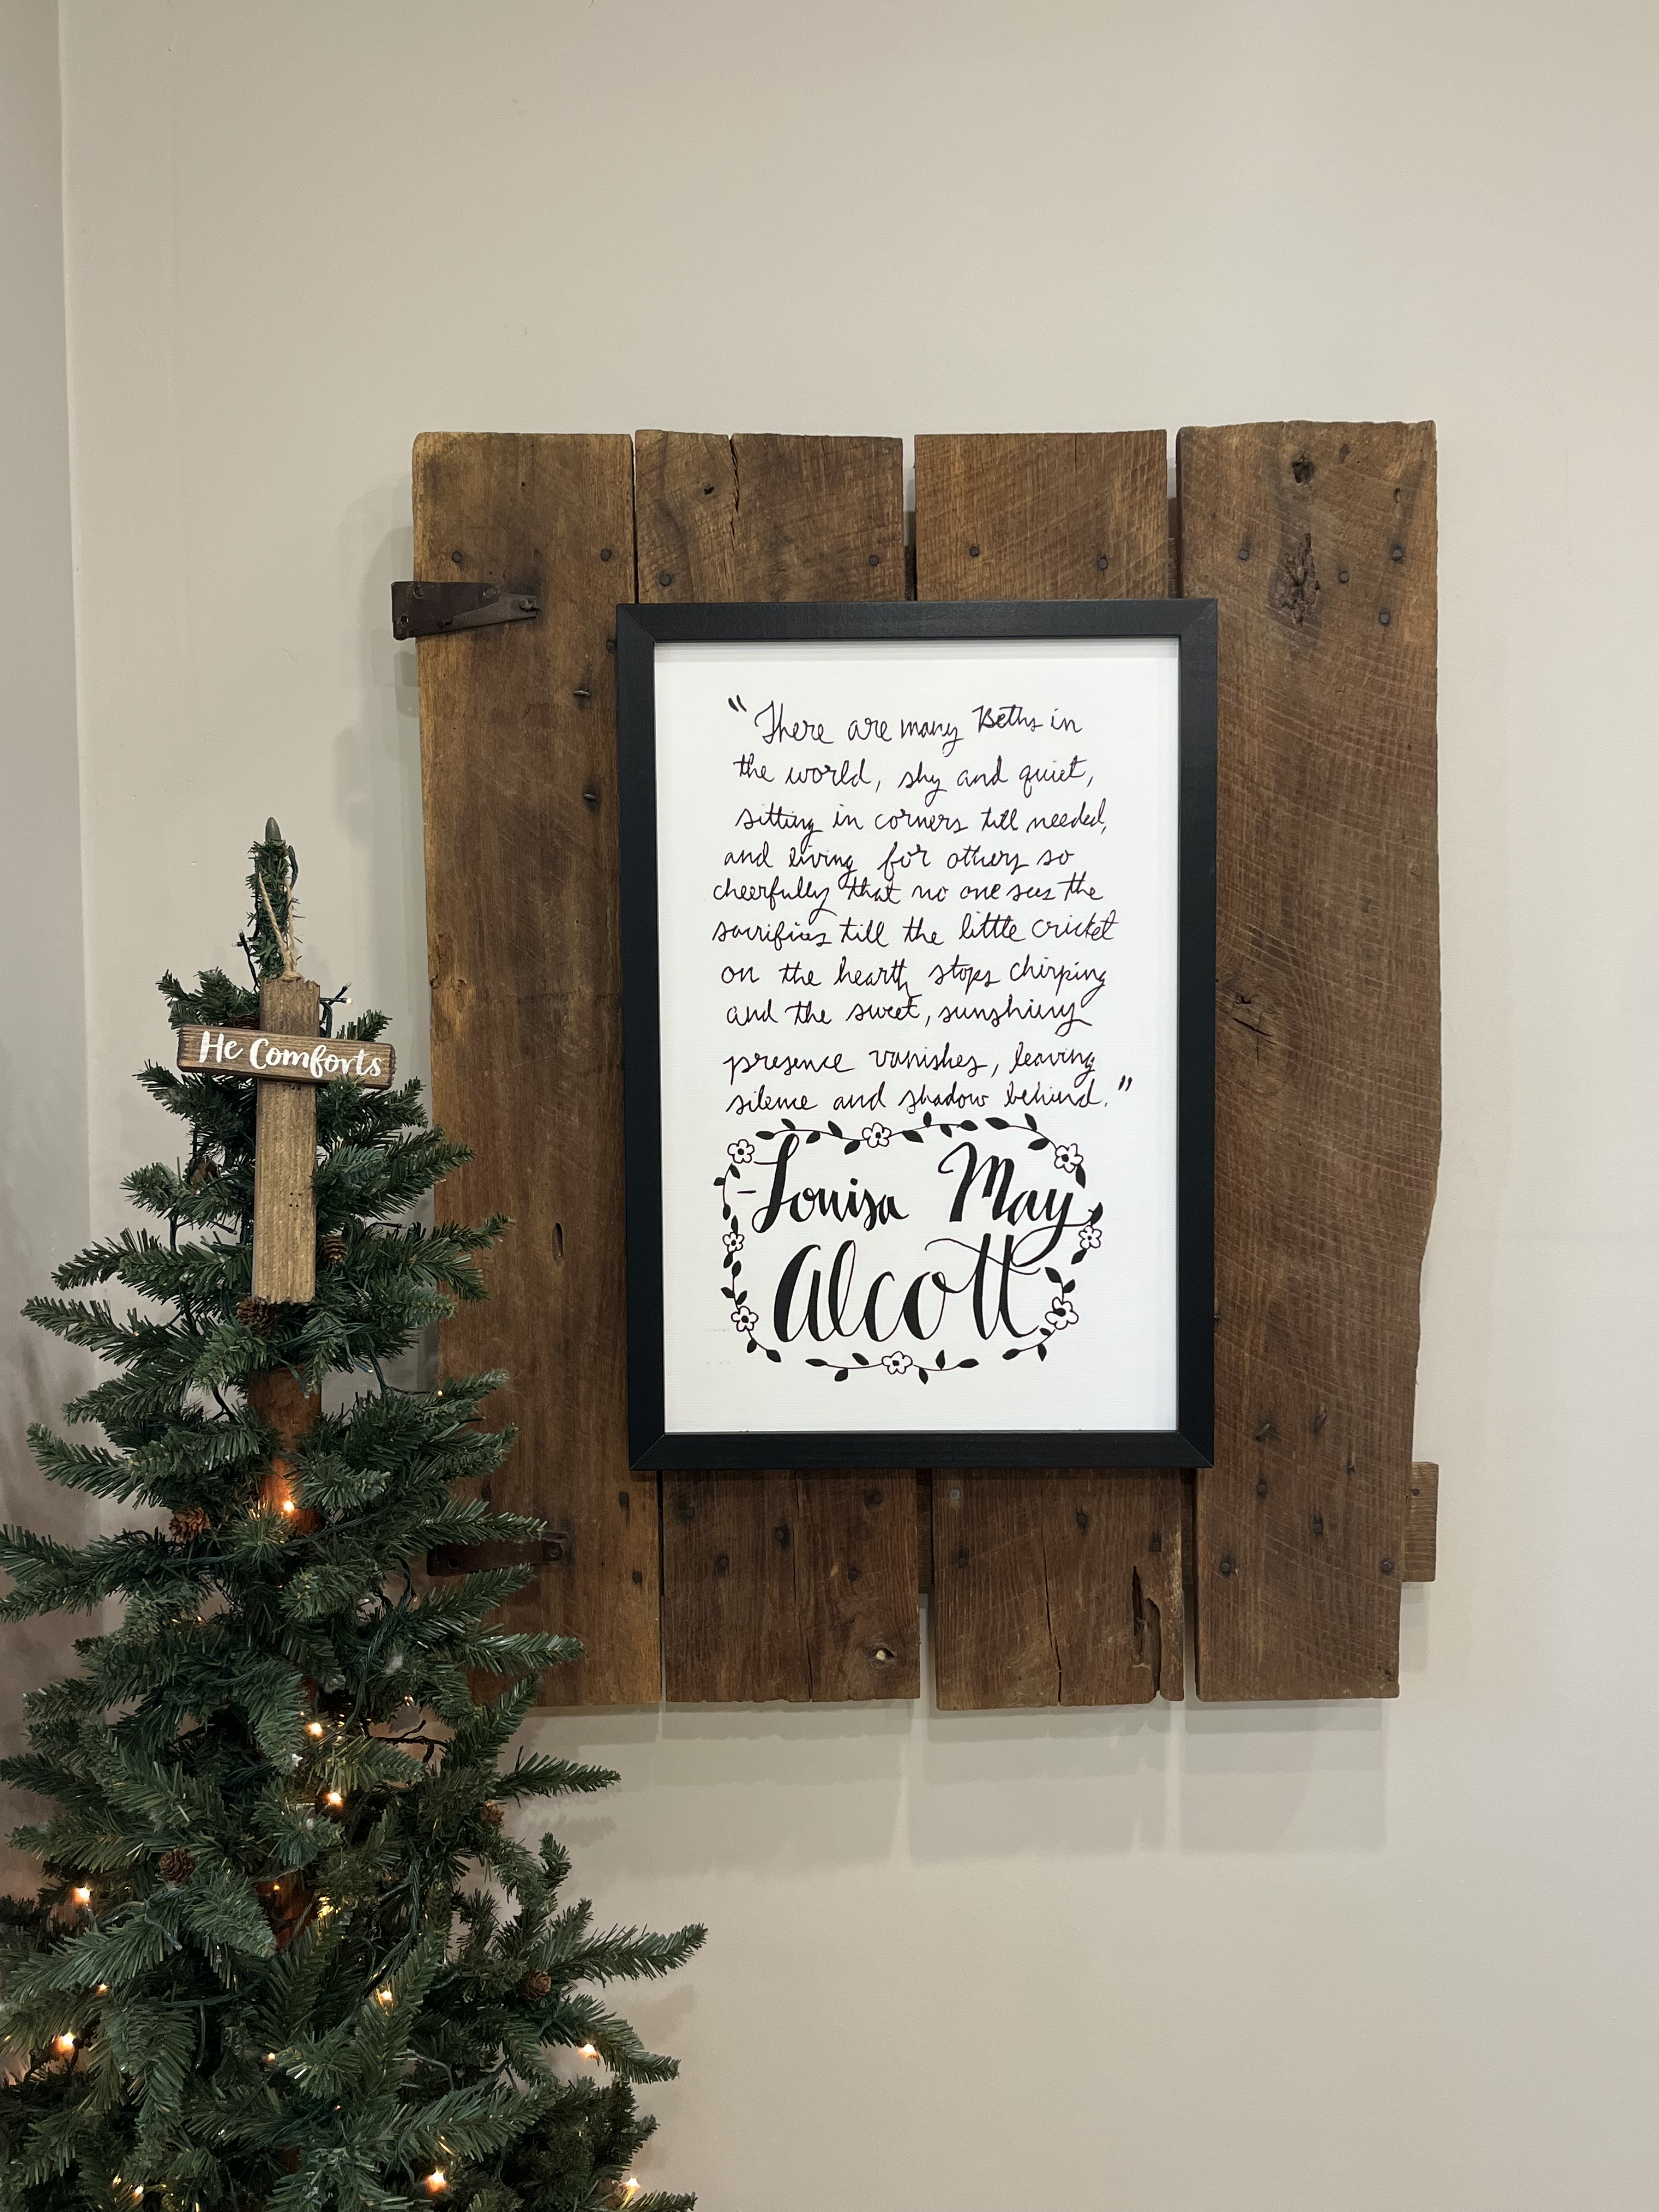 "There are many Beths in
the world, shy and quiet,
sitting in corners till needed,
and living for others so
cheerfully that no one sees the
sacrifices till the little cricket
on the hearth stops chirping
and the sweet, sunshiny
presence vanishes, leaving
silence and shadow behind."
-Louisa May
Alcott
He Comforts